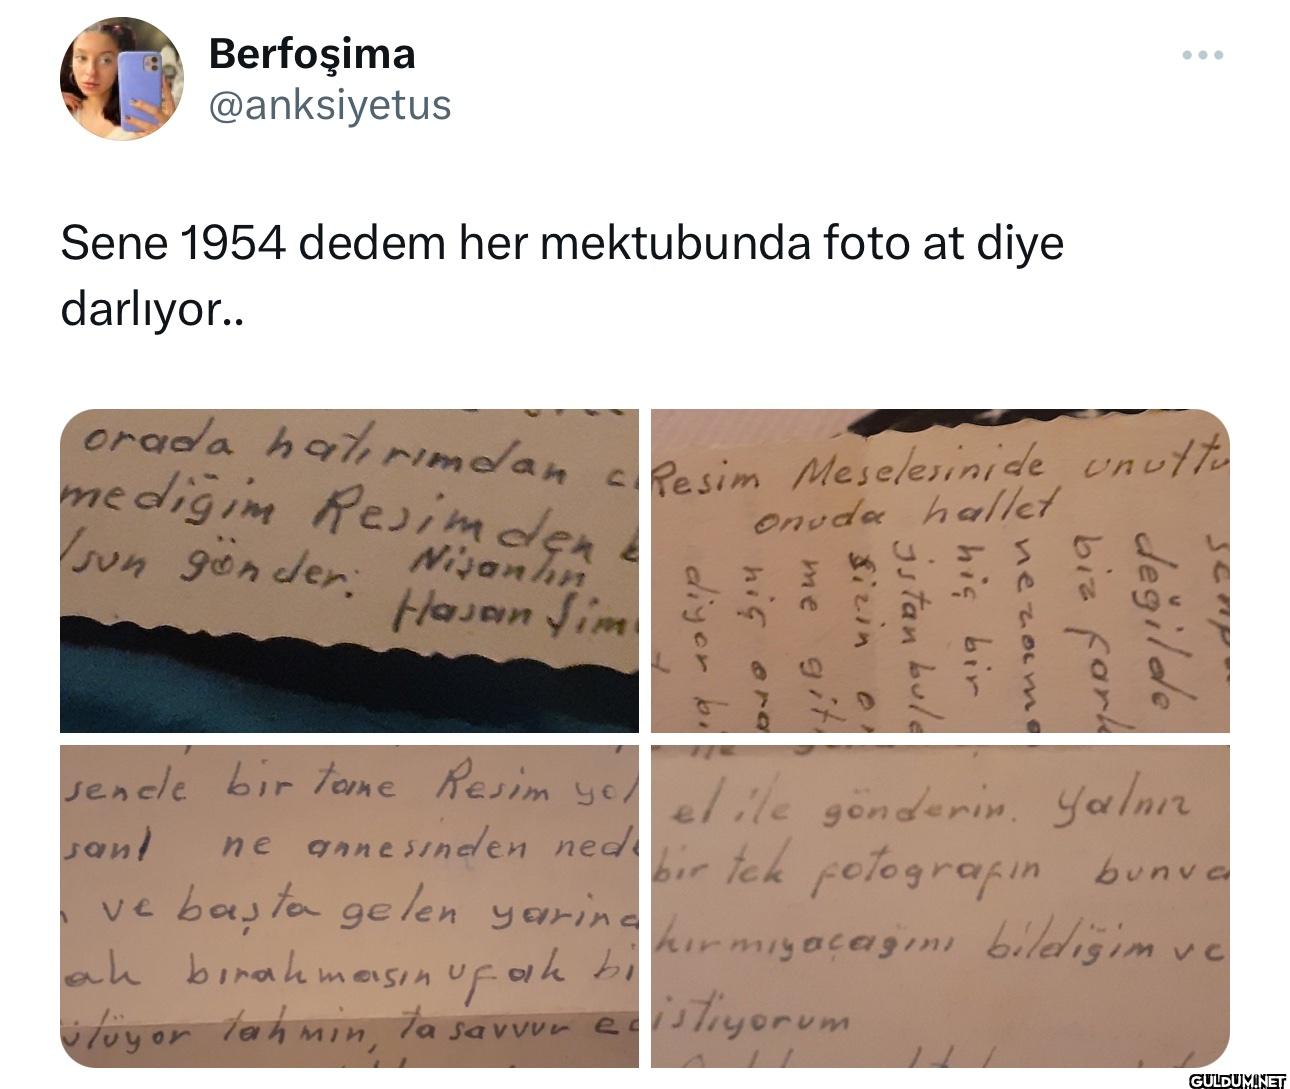 Berfoşima
@anksiyetus
Sene 1954 dedem her mektubunda foto at diye
darlıyor..
orada hatırımdan
mediğim Resimden
sun gönder:
Nişanlın
Hasan Şim
Resim Meselesinide unuttu
onuda hallet
değilde
biz
ne zama
hiç bir
istanbul
sizin
me git
hiç ora
diyor bi
sende bir tane Resim yol
sanl ne annesinden ned
ve başta gelen yarind
ak bırakmasın ufak bi
ülüyor tahmin, tasavvur ed
el ile gönderin. Yalnız
bir tek fotografın bunu
kırmıyacağını bildiğim ve
istiyorum
GULDUM.NET